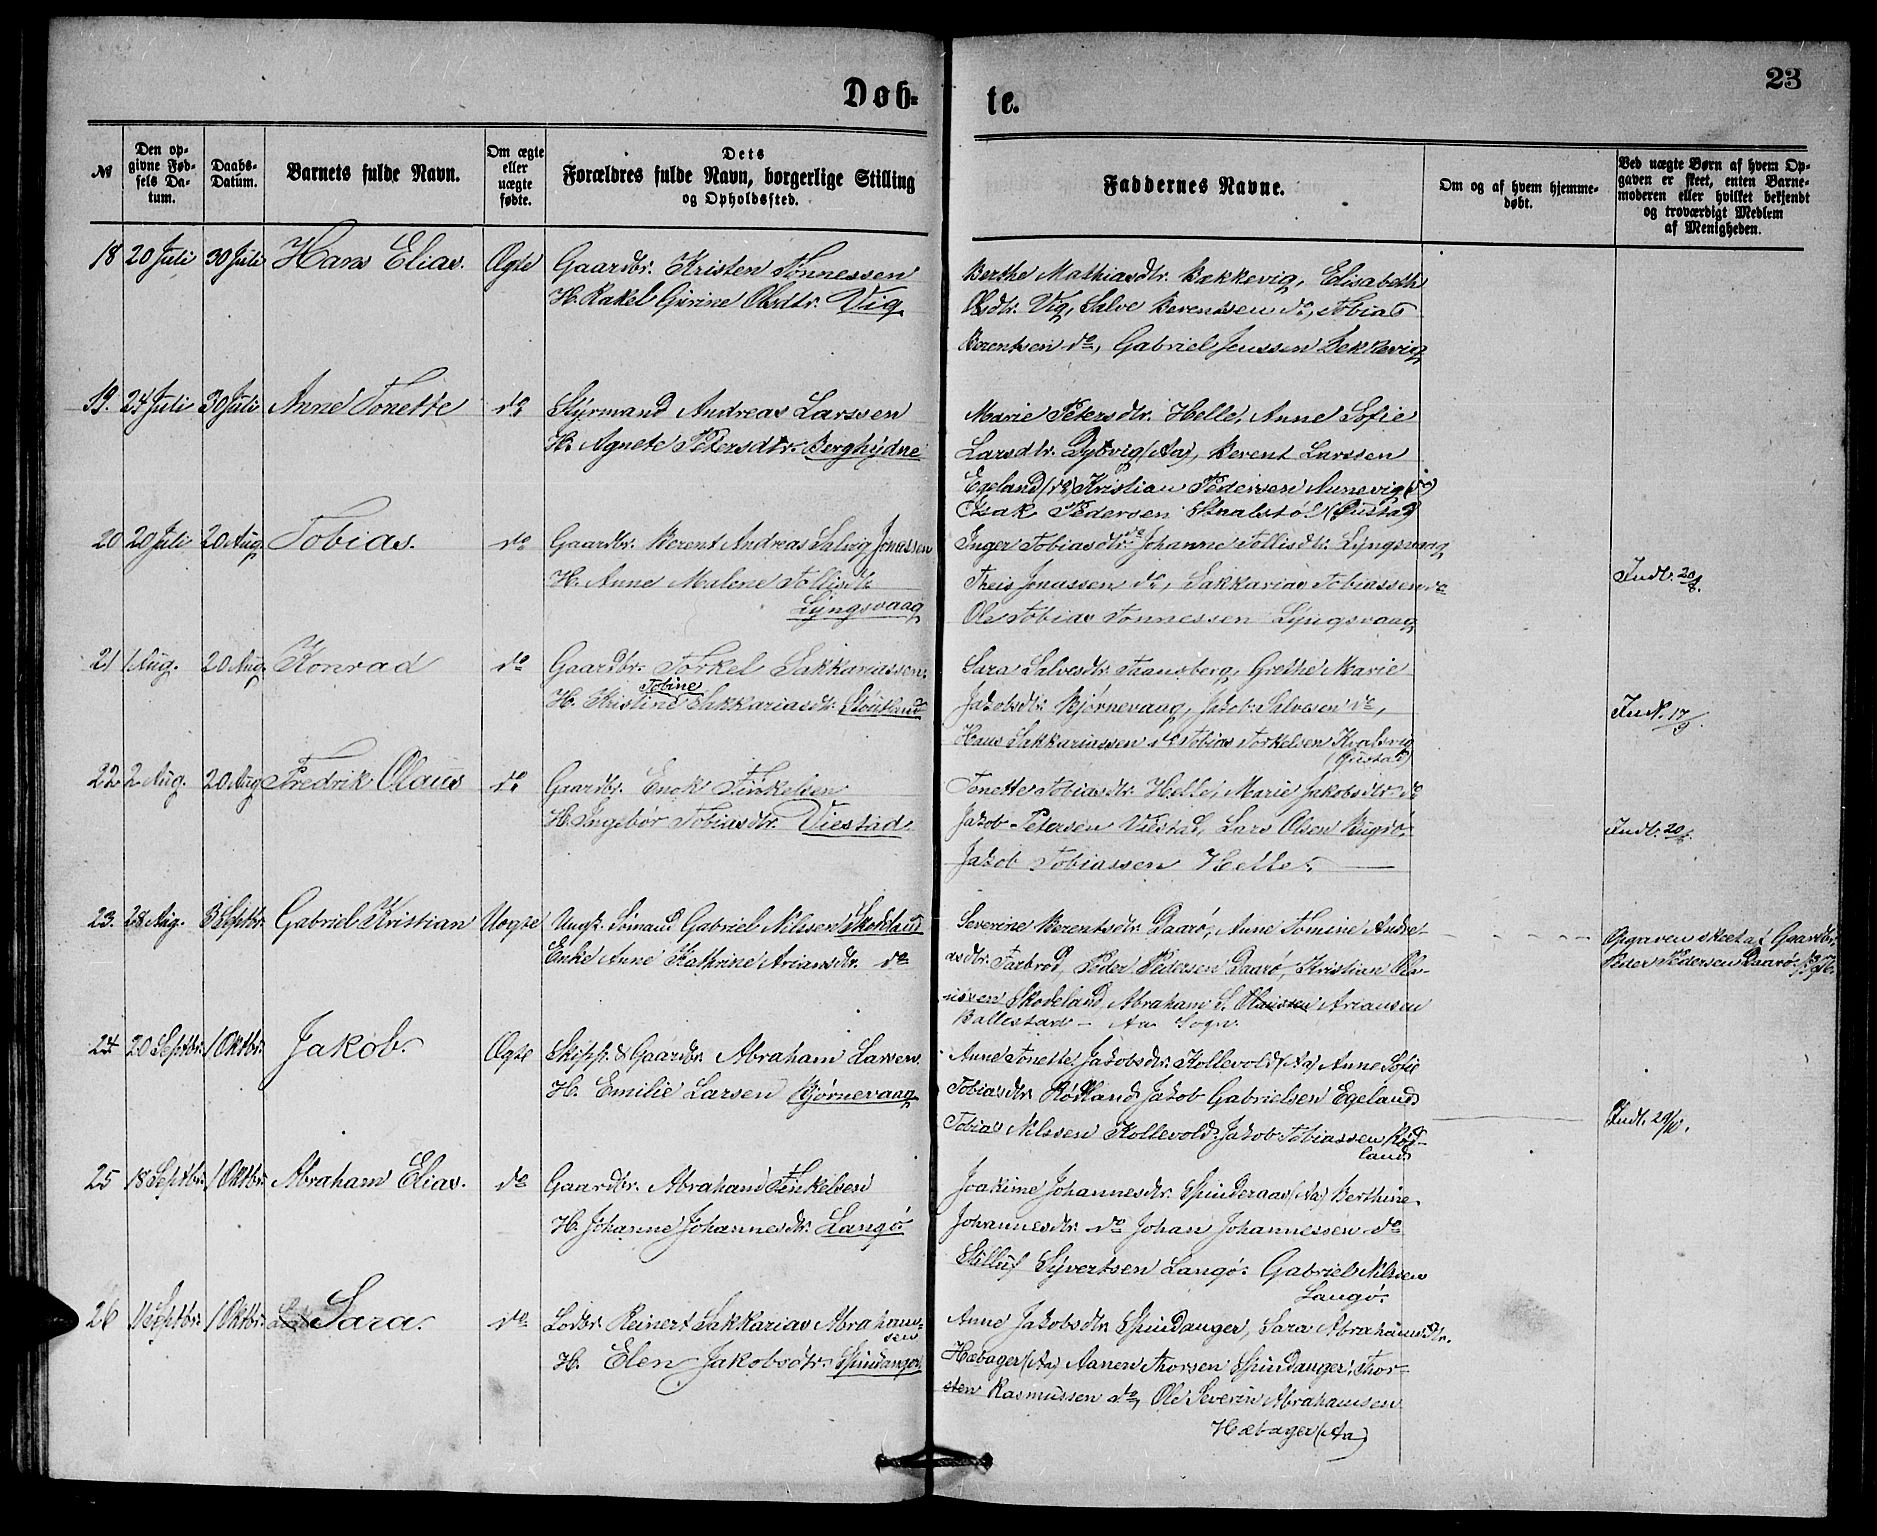 23
Døb-
te.
№
Den op-
givne Fød-
sels Da-
tum.
Daabs-
Datum.
Barnets fulde Navn.
Om ægte
eller
uægte
fødte.
Dets
Forældres fulde Navn, borgerlige Stilling
og Opholdssted.
Faddernes Navne.
Om og af hvem hjemme-
døbt.
Ved uægte Børn af hvem Op-
gaven er skeet, enten Barne-
moderen eller hvilket bekjendt
og troværdigt Medlem
af Menigheden.
18 20 Juli 30 Juli Hans Elias. Ægte Gaardbr. Kristen Tønnessen
H. Rakel Gurine Olsdtr. Vig
Berthe Mathiasdtr. Bakkevig, Elisabeth
Olsdtr. Vig, Salve Berentsen do, Tobias
Berentsen do, Gabriel Jenssen Bekkevig
19. 24 Juli 30 Juli Anne Tonette do Styrmand Andreas Larssen
H. Agnete Petersdtr. Berghydne
Marie Petersdtr. Helle, Anne Sofie
Larsdtr. Dybvig (Aa), Berent Larssen
Egeland (do) Kristian Pedersen Annevig (do)
Isak Pedersen
20 20 Juli 20 Aug. Tobias. do Gaardbr. Berent Andreas Salvig Jonassen
H. Anne Malene Tollisdtr.
Lyngsvaag
Inger Tobiasdtr. do Johanne Tollisdtr. Lyngsvaag
Theis Jonassen do, Sakkarias Tobiassen do
Ole Tobias Tønnessen Lyngsvaag
Indl. 20/8.
21 1 Aug. 20 Aug. Konrad do Gaardbr. Torkel Sakkariassen.
Tobine
H. Kristine Sakkariasdtr. Stoutland
Sara Salvesdtr. Transberg, Grethe Marie
Jakobsdtr. Bjørnevaag, Jakob Salvesen do,
Hans Sakkariassen do Tobias Torkelsen Kvalsvig
Indl. 17/9
22 2 Aug. 20 Aug Fredrik Olaus do Gaardbr. Enok Finkelsen
H. Ingebor Tobiasdtr. Viestad
Tonette Tobiasdtr. Helle, Marie Jakobsdtr. do
Jakob Petersen Viestad, Lars Olsen Bugsø,
Jakob Tobiassen Helle.
Indl. 20/8.
23. 28 Aug. 3 Septbr. Gabriel Kristian Uægte Ungk. Sømand Gabriel Nilssen Skodeland
Enke Anne Kathrine Ariansdtr. do
Severine Berentsdtr. Daarø, Anne Tomine Andre-
asdtr. Farbrod, Peder Pedersen Daarø, Kristian Ola-
ussen Skodeland, Abraham S. Ariansen
Ballestad - Aa Sogn.
Opgaven skeet af Gaardbr.
Peder Pedersen Daarø.
24 20 Septbr. 1 Oktbr. Jakob. Ægte Skipp. & Gaardbr. Abraham Larsen.
H. Emilie Larsen Bjørnevaag
Anne Tonette Jakobsdtr. Kollevold (Aa) Anne Sofie
Tobiasdtr. Rødland Jakob Gabrielsen Egeland
Tobias Nilssen Kollevold. Jakob Tobiassen Rød-
land
Indl. 29/10.
25 18 Septbr. 1 Oktbr. Abraham Elias. do Gaardbr. Abraham Finkelsen
H. Johanne Johannesdtr. Langø
Joakime Johannesdtr. Spinderaas (Aa) Berthine
Johannesdtr. do Johan Johannessen do
Stilluf Syvertsen Langø. Gabriel Nilssen
Langø.
26 11 Septbr. 1 Oktbr. Sara. do Lodbr. Reinert Sakkarias Abraham-
sen
H. Elen Jakobsdtr. Spindanger
Anne Jakobsdtr. Spindanger, Sara Abrahamsdtr.
Hæbager (Aa) Aanen Thorsen Spindanger, Thor-
sten Rasmussen do, Ole Severin Abrahamsen
Hæbager (Aa)